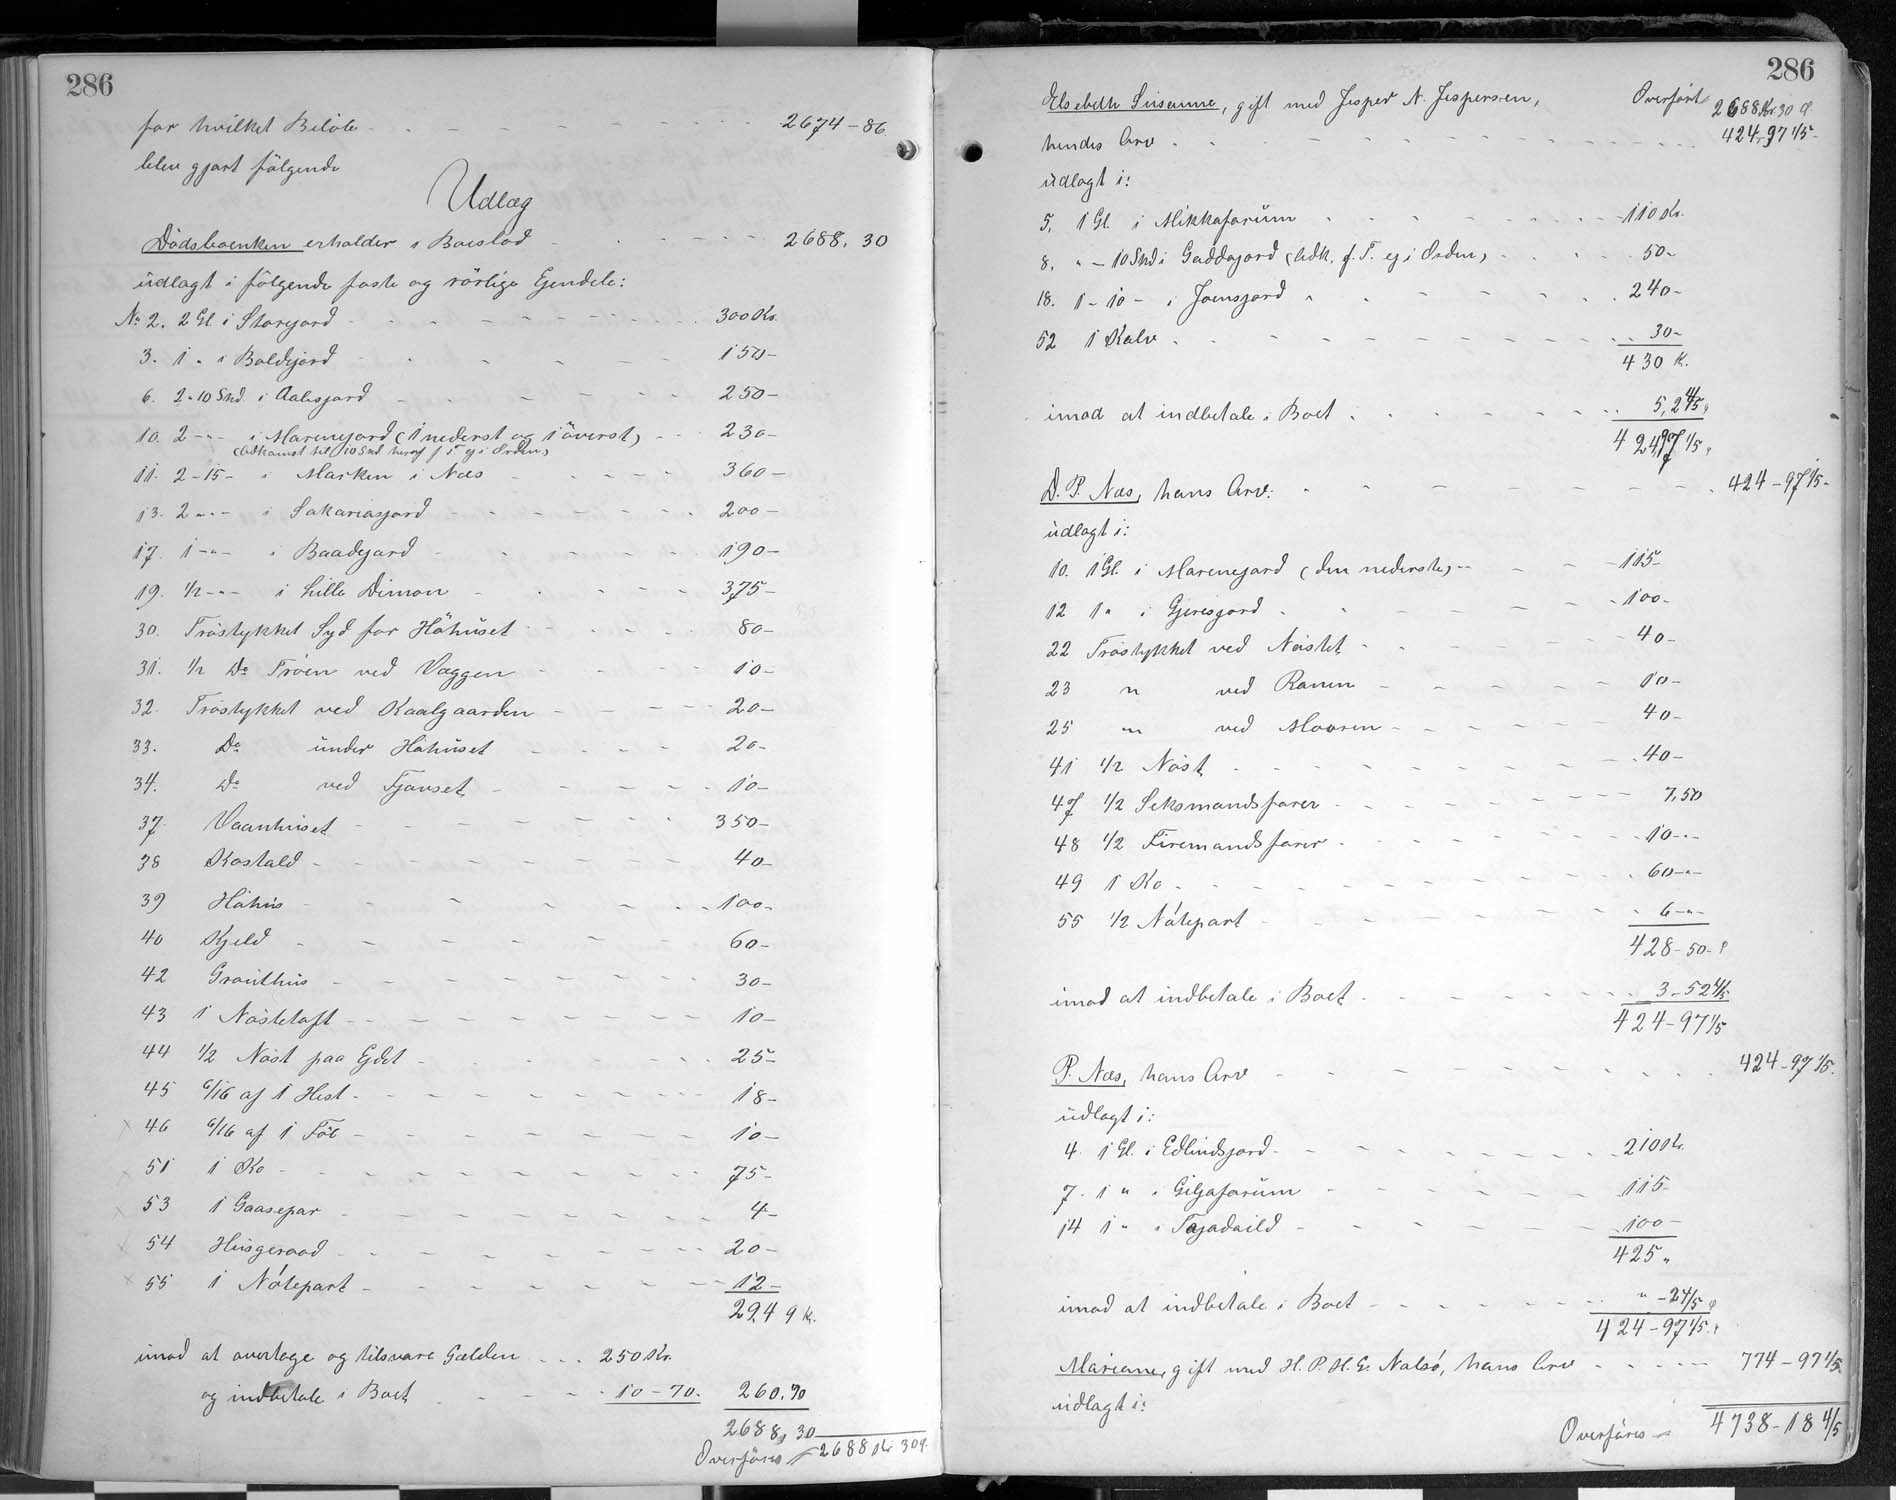 286
for hvilket Beløb - - - - - - 2674-86
blev gjort følgende
Udlæg
Dødsboenken erholder i Boeslod - - - - 2688,30
udlagt i følgende faste og rørlige Ejendele:
No 2. 2 Gl. i Storegjord - - - 300 Kr.
3. 1 " i Boldgjord - - - 150-
6. 2-10 Skd. i Aalesgjord - - - 250-
10. 2-"- i Marenegjord (1 nederst og 1 överst) - - 230-
(Adkomst til 10 Skd heraf f. T. ej i Orden)
11. 2-15- i Marken i Næs - - - 360-
13. 2-"- i Sakariasgjord - - - 200-
17. 1-"- i Baadgjord - - - 190-
19. 1/2-"- i Lille Dimon - - - 375-
30. Tröstykket Syd for Höhuset - - - 80-
31. 1/2 Do Tröen ved Væggen - - - 10-
32. Tröstykket ved Kaalgaarden - - - 20-
33. Do under Höhuset - - - 20-
34. Do ved Tjanset - - - 10-
37. Vaanhuset - - - 350-
38 Kostald - - - 40-
39 Höhus - - - 100-
40 Kjeld - - - 60-
42 Grouthus - - - 30-
43 1 Nöstetoft - - - 10-
44 1/2 Nöst paa Ejdet - - - 25-
45 6/16 af 1 Hest - - - 18-
46 6/16 af 1 Föl - - - 10-
51 1 Ko - - - 75-
53 1 Gaasepar - - - 4-
54 Husgeraad - - - 20-
55 1 Nótepart - - - 12-
2949 K.
imod at overtage og tilsvare Gælden - - - 250 Kr.
og indbetale i Boet - - - 10-70. 260.70
2688,30
Overføres 2688 Kr 30 Ø.
286
Elsebeth Susanne, gift med Jesper N. Jespersen, Overført 2688 Kr 30 Ø.
hendes Arv - - - 424-97 1/5-
udlagt i:
5. 1 Gl. i Mikkaforum - - - 110 Kr.
8. "-10 Skd i Gaddagjord (Adk. f. T. ej i Orden) - - - 50-
18. 1-10- i Joensgjord - - - 240-
52 1 Kalv - - - 30-
430 K.
imod at indbetale i Boet - - - 5,2 4/5
424,97 1/5
D. P. Næs, hans Arv: - - - 424-97 1/5-
udlagt i:
10. 1 Gl. i Marenegjord (den nederste) - - - 115-
12 1 " i Gjeresgjord - - - 100-
22 Tröstykket ved Nöstet - - - 40-
23 " ved Ranen - - - 10-
25 " ved Mooren - - - 40-
41 1/2 Nöst - - - 40-
47 1/2 Seksmandsfarer - - - 7,50
48 1/2 Firemandsfarer - - - 10-"-
49 1 Ko - - - 60-"-
55 1/2 Nótepart - - - 6-"-
428-50-
imod at indbetale i Boet - - - 3-52 4/5
424-97 1/5
P. Næs, hans Arv - - - 424-97 1/5.
udlagt i:
4. 1 Gl. i Edlindsgjord - - - 210 Kr.
7. 1 " i Giljaforum - - - 115-
14 1 " i Tajadaild - - - 100-
425 "
imod at indbetale i Boet - - - "-2 4/5
424-97 1/5
Mariane, gift med H. P. H. G. Nalsö, hans Arv - - - 774-97 1/5
udlagt i:
Overføres 4738-18 4/5